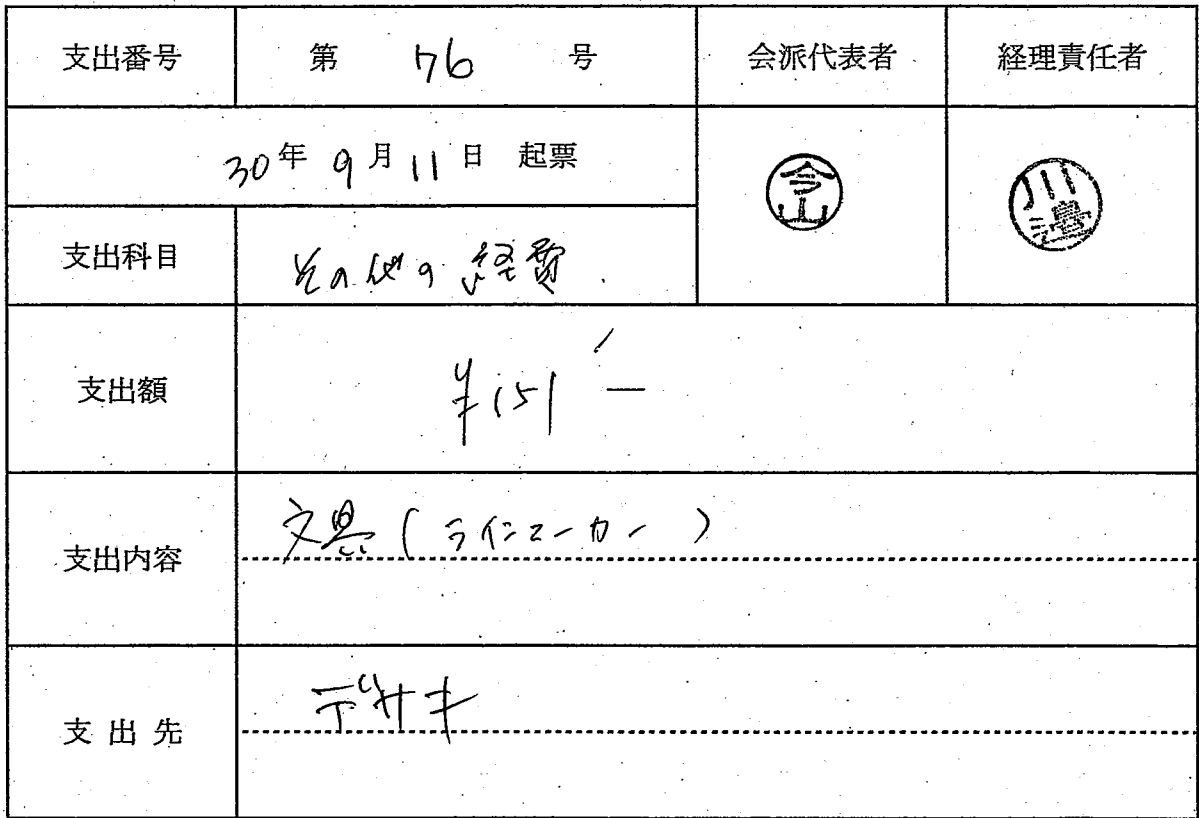 支出番号 第 76 号 会派代表者 経理責任者
30年 9月 11日 起票
今山 川邉
支出科目 その他の経費
支出額 ¥151-
支出内容 文具(ラインマーカー)
支出先 デサキ